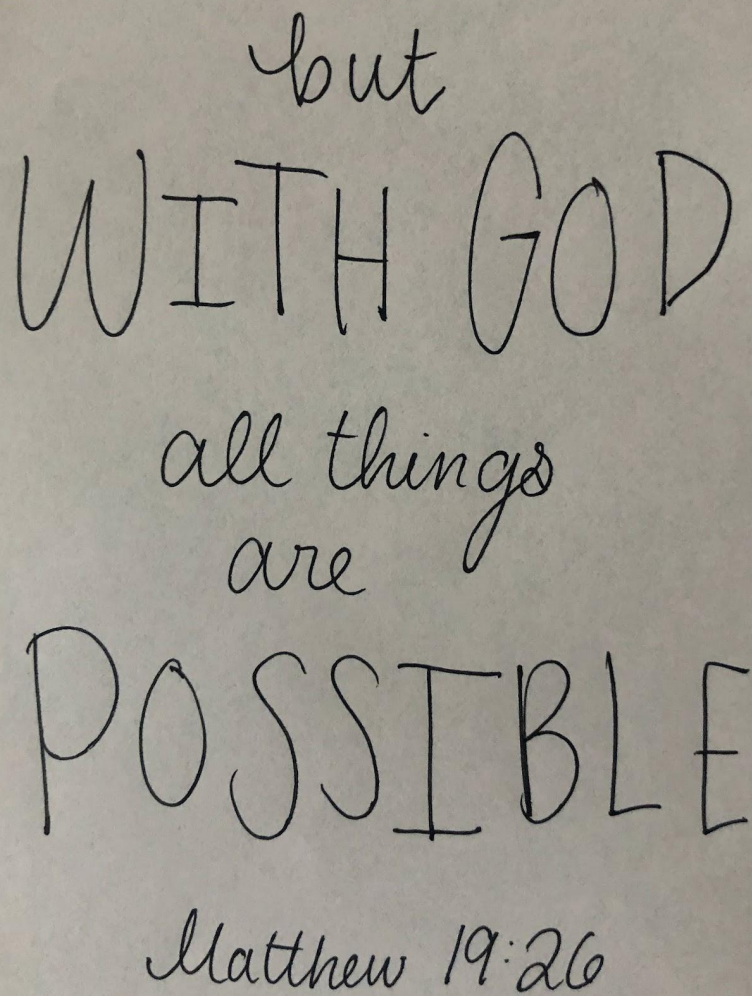 but
WITH GOD
all things
are
POSSIBLE
Matthew 19:26